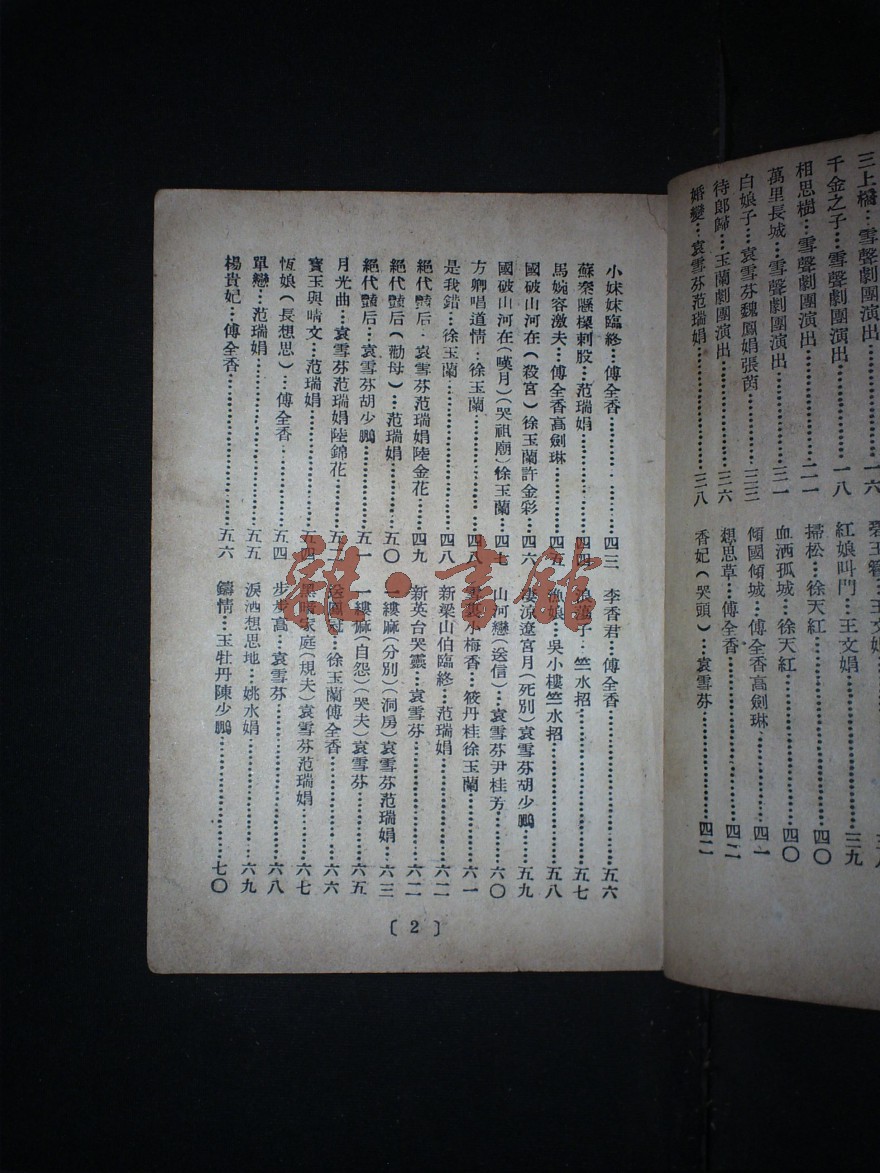 三上橋⋯雪聲劇團演出⋯⋯一六
千金之子⋯雪聲劇團演出⋯⋯一八
相思樹⋯雪聲劇團演出⋯⋯二一
萬里長城⋯雪聲劇團演出⋯⋯三一
白娘子⋯袁雪芬魏鳳娟張茵⋯⋯三三
待郎歸⋯玉蘭劇團演出⋯⋯三六
婚變⋯袁雪芬范瑞娟⋯⋯三八
紅娘叫門⋯王文娟⋯⋯三九
掃松⋯徐天紅⋯⋯四〇
血洒孤城⋯徐天紅⋯⋯四〇
傾國傾城⋯傅全香高劍琳⋯⋯四一
想思草⋯傅全香⋯⋯四二
香妃(哭頭)⋯袁雪芬⋯⋯四二
小妹妹臨終⋯傅全香⋯⋯四三
蘇秦懸樑刺股⋯范瑞娟⋯⋯四四
馬婉容激夫⋯傅全香高劍琳⋯⋯四五
國破山河在(殺宮)徐玉蘭許金彩⋯⋯四六
國破山河在(嘆月)(哭祖廟)徐玉蘭⋯四七
方卿唱道情⋯徐玉蘭⋯⋯四八
是我錯⋯徐玉蘭⋯⋯四八
絕代艷后⋯袁雪芬范瑞娟陸金花⋯⋯四九
絕代艷后(勸母)⋯范瑞娟⋯⋯五〇
絕代艷后⋯袁雪芬胡少鵬⋯⋯五一
月光曲⋯袁雪芬范瑞娟陸錦花⋯⋯五二
寶玉與晴文⋯范瑞娟⋯⋯五四
恆娘(長想思)⋯傅全香⋯⋯五四
單戀⋯范瑞娟⋯⋯五五
楊貴妃⋯傅全香⋯⋯五六
李香君⋯傅全香⋯⋯五六
浪蕩子⋯竺水招⋯⋯五七
漁娘⋯吳小樓竺水招⋯⋯五八
淒涼遼宮月(死別)袁雪芬胡少鵬⋯五九
山河戀(送信)⋯袁雪芬尹桂芳⋯⋯六〇
小梅香⋯筱丹桂徐玉蘭⋯⋯六一
新梁山伯臨終⋯范瑞娟⋯⋯六二
新英台哭靈⋯袁雪芬⋯⋯六二
一縷麻(分別)(洞房)袁雪芬范瑞娟⋯六三
一縷麻(自怨)(哭夫)袁雪芬⋯⋯六五
送鳳冠⋯徐玉蘭傅全香⋯⋯六六
黑暗家庭(規夫)袁雪芬范瑞娟⋯⋯六七
步步高⋯袁雪芬⋯⋯六八
淚洒想思地⋯姚水娟⋯⋯六九
鑄情⋯玉牡丹陳少鵬⋯⋯七〇
〔2〕
雜·書館